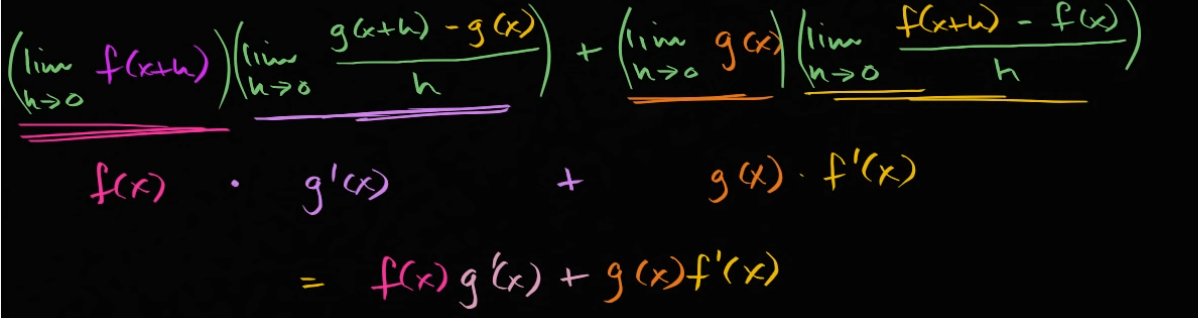 (lim h→0 f(x+h)) (lim h→0 g(x+h) - g(x) / h) + (lim h→0 g(x)) (lim h→0 f(x+h) - f(x) / h)
f(x) · g'(x) + g(x) · f'(x)
= f(x) g'(x) + g(x) f'(x)